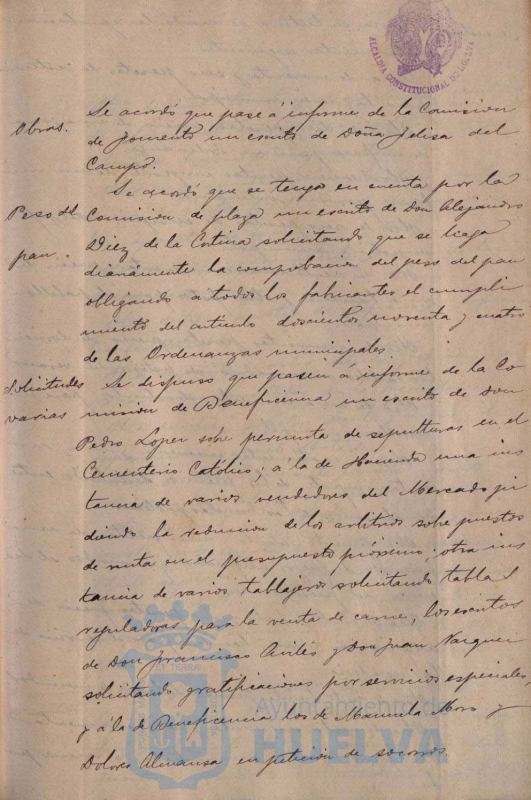 ALCALDIA CONSTITUCIONAL DE HUELVA
Obras.
Se acordó que pase á informe de la Comision
de fomento un escrito de Doña Felisa del
Campo.
Peso del
pan.
Se acordó que se tenga en cuenta por la
Comision de plaza un escrito de Don Alejandro
Diez de la Cortina solicitando que se haga
diariamente la comprobacion del peso del pan
obligando a todos los fabricantes el cumpli
miento del articulo doscientos noventa y cuatro
de las Ordenanzas municipales
Solicitudes
varias
Se dispuso que pasen á informe de la Co
mision de Beneficencia un escrito de Don
Pedro Lopez sobre permuta de sepulturas en el
Cementerio Católico; á la de Hacienda una ins
tancia de varios vendedores del Mercado pi
diendo la reduccion de los arbitrios sobre puestos
de venta en el presupuesto próximo; otra ins
tancia de varios tablajeros solicitando tablas
reguladoras para la venta de carne, los escritos
de Don Francisco Avilés y Don Juan Vazquez
solicitando gratificaciones por servicios especiales,
y á la de Beneficencia los de Manuela Moro y
Dolores Almansa en peticion de socorros.
Ayuntamiento de
HUELVA